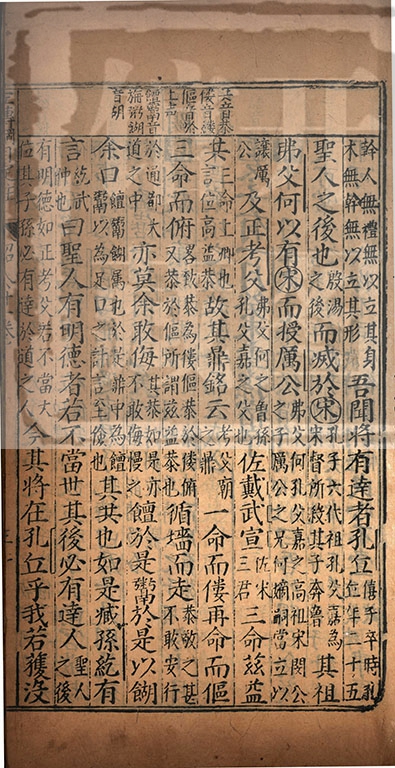 幹人無禮無以立其身木無幹無以立其形吾聞將有達者孔丘僖子卒時孔丘年二十五
聖人之後也殷湯之後而滅於宋孔子六代祖孔父嘉為宋督所殺其子奔魯其祖
弗父何以有宋而授厲公弗父何孔父嘉之高祖宋閔公之子厲公之兄何嫡嗣當立以
讓厲公及正考父弗父何之曾孫孔父嘉之父也佐戴武宣佐宋三君三命茲益
共三命上卿也言位高益恭故其鼎銘云考父廟之鼎一命而僂再命而傴
三命而俯恭於傴所謂茲益恭也循墻而走敬之甚不敢安行
於通鄙大道之中亦莫余敢侮其恭如是亦不敢侮慢之饘於是鬻於是以餬
余口饘鬻餬屬也於是鼎中為饘鬻以為足口之計言至儉也其共也如是臧孫紇有
言紇武仲也曰聖人有明德者若不當世其後必有達人聖人之後
有明德如正考父若不當大位其子孫必有達於道之人今其將在孔丘乎我若獲沒
僂音縷
饘鬻音
旃粥餬
音胡